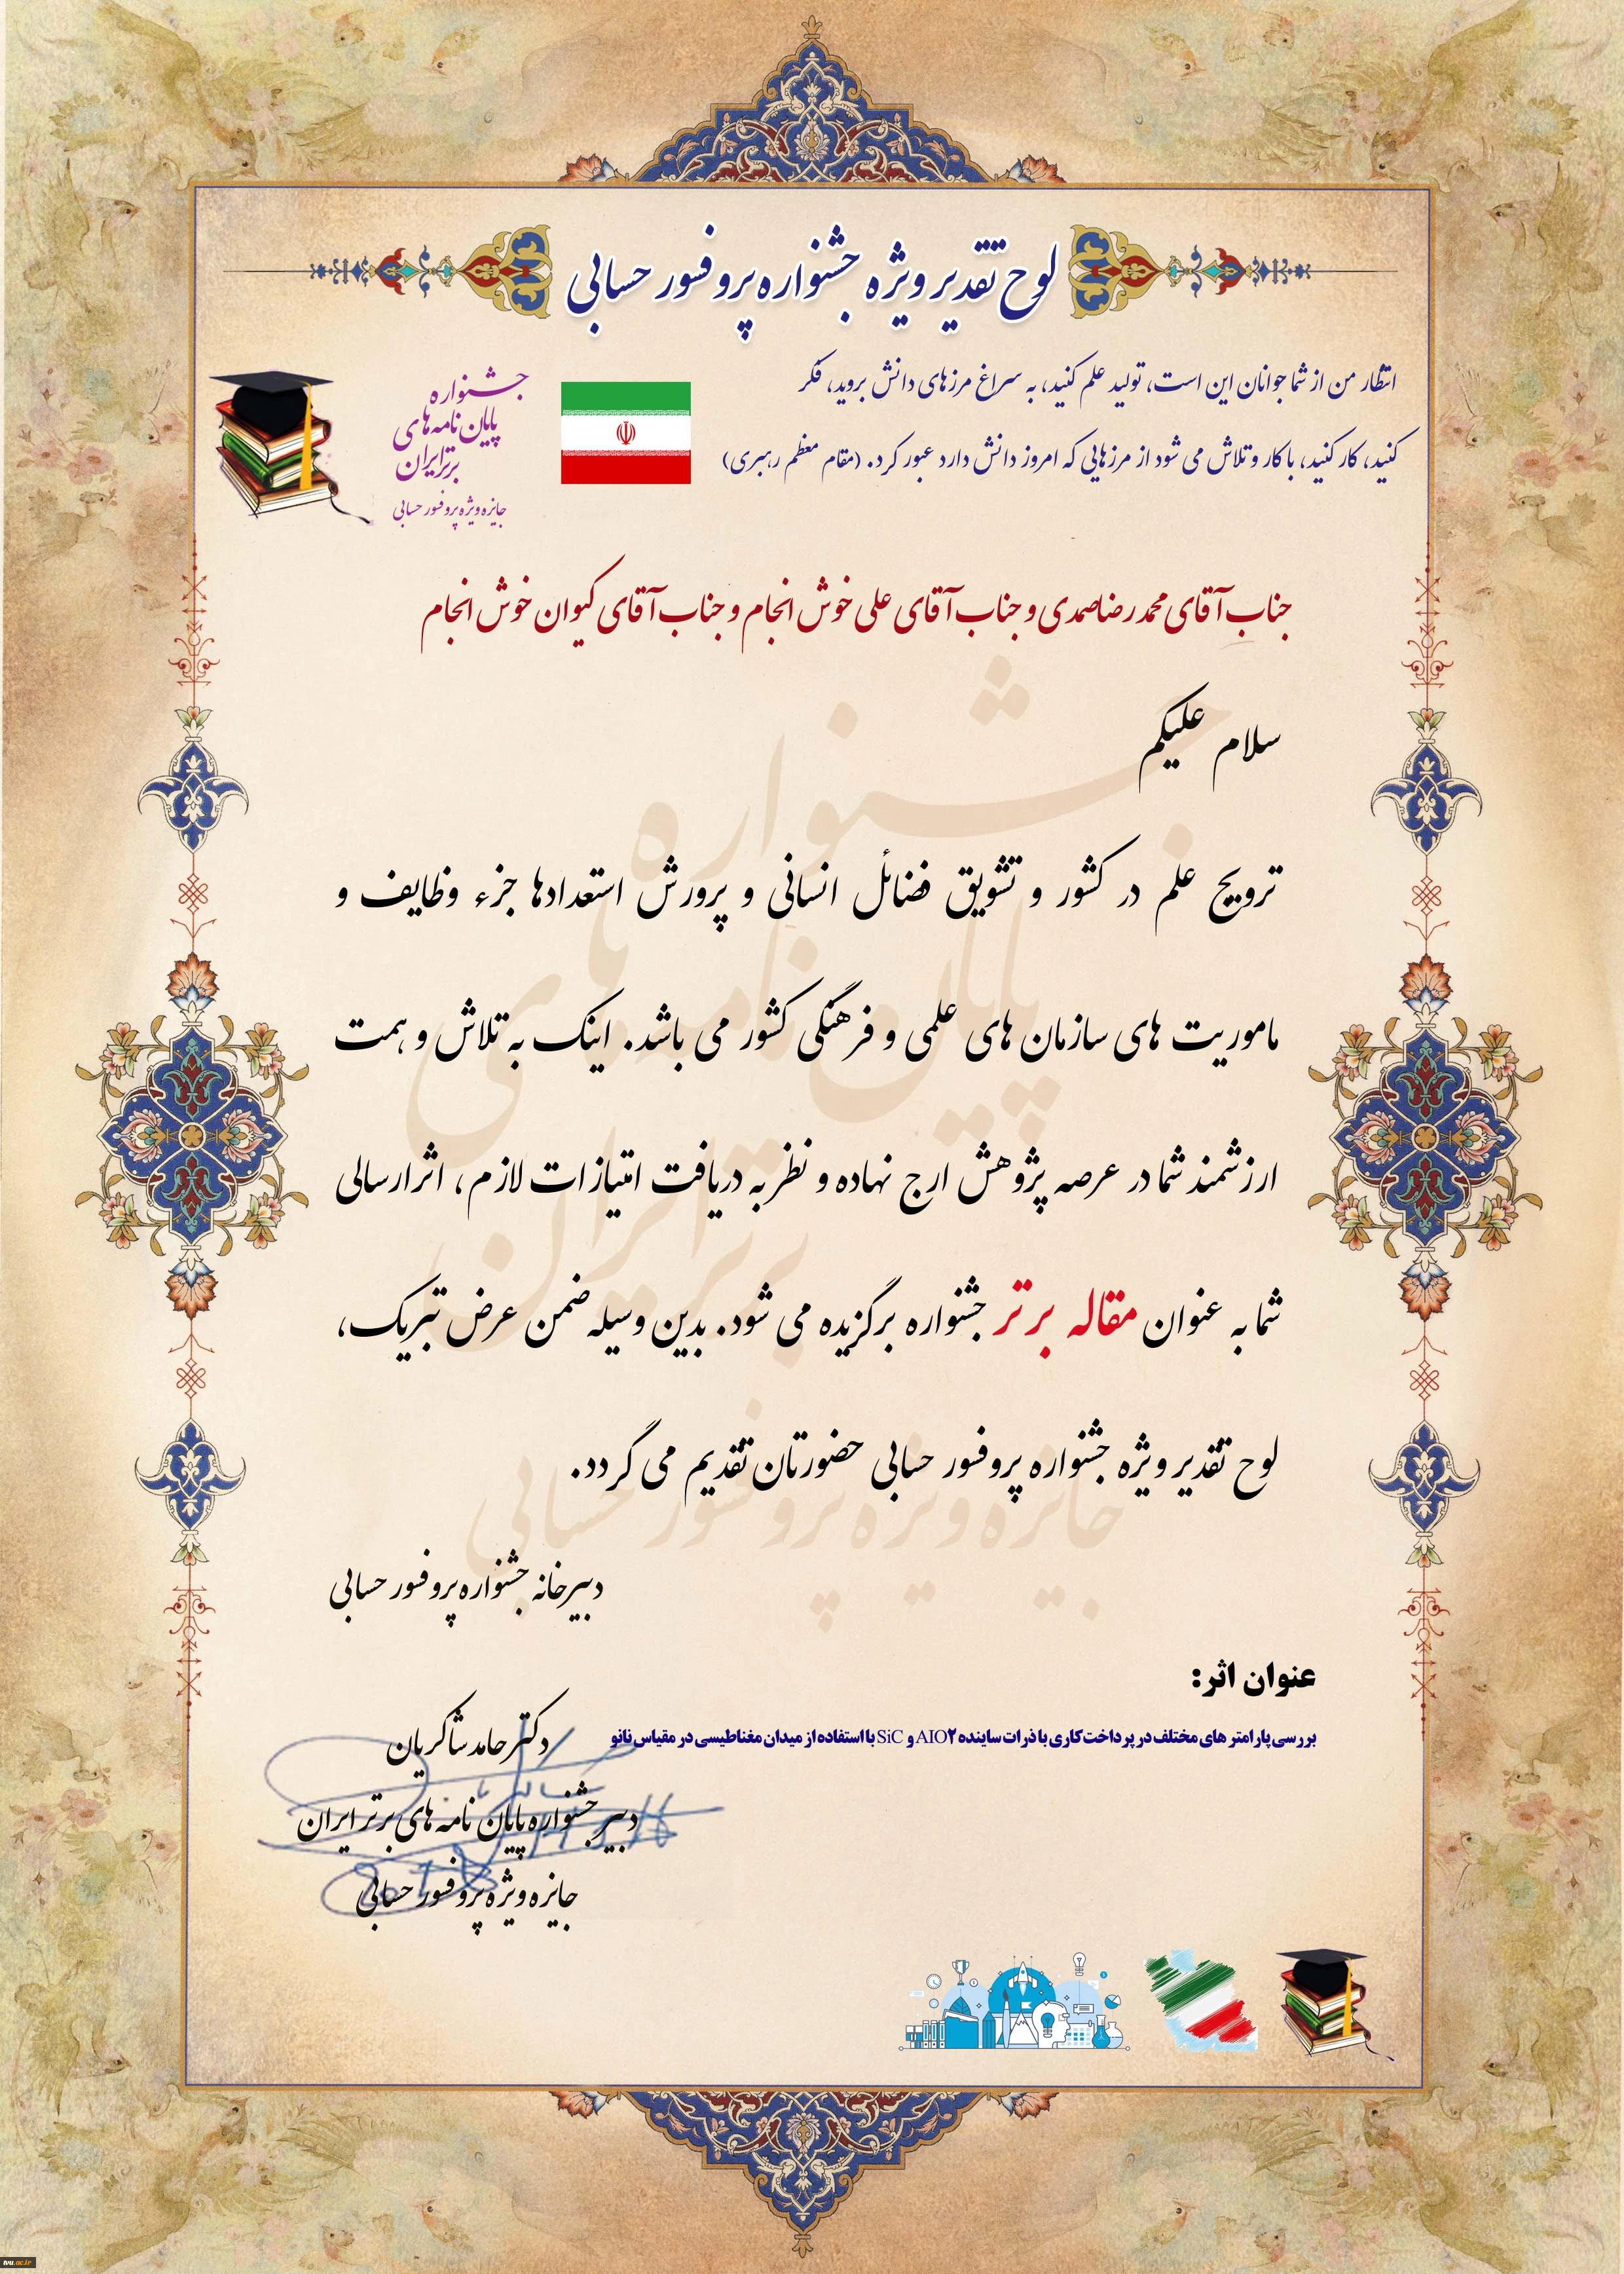 لوح تقدیر ویژه جشنواره پروفسور حسابی
انتظار من از شما جوانان این است، تولید علم کنید، به سراغ مرزهای دانش بروید، فکر
کنید، کار کنید، با کار و تلاش می شود از مرزهایی که امروز دانش دارد عبور کرد. (مقام معظم رهبری)
جشنواره
پایان نامه‌های
برتر ایران
جایزه ویژه پروفسور حسابی
جناب آقای محمدرضا صمدی و جناب آقای علی خوش انجام و جناب آقای کیوان خوش انجام
سلام علیکم
ترویج علم در کشور و تشویق فضائل انسانی و پرورش استعدادها جزء وظایف و
ماموریت های سازمان های علمی و فرهنگی کشور می باشد. اینک به تلاش و همت
ارزشمند شما در عرصه پژوهش ارج نهاده و نظر به دریافت امتیازات لازم، اثر ارسالی
شما به عنوان مقاله برتر جشنواره برگزیده می شود. بدین وسیله ضمن عرض تبریک،
لوح تقدیر ویژه جشنواره پروفسور حسابی حضورتان تقدیم می گردد.
دبیرخانه جشنواره پروفسور حسابی
عنوان اثر:
بررسی پارامتر های مختلف در پرداخت کاری با ذرات ساینده AIO۲ و SiC با استفاده از میدان مغناطیسی در مقیاس نانو
دکتر حامد شاکریان
دبیر جشنواره پایان نامه های برتر ایران
جایزه ویژه پروفسور حسابی
جشنواره
پایان نامه های
برتر ایران
جایزه ویژه پروفسور حسابی
tvu.ac.ir